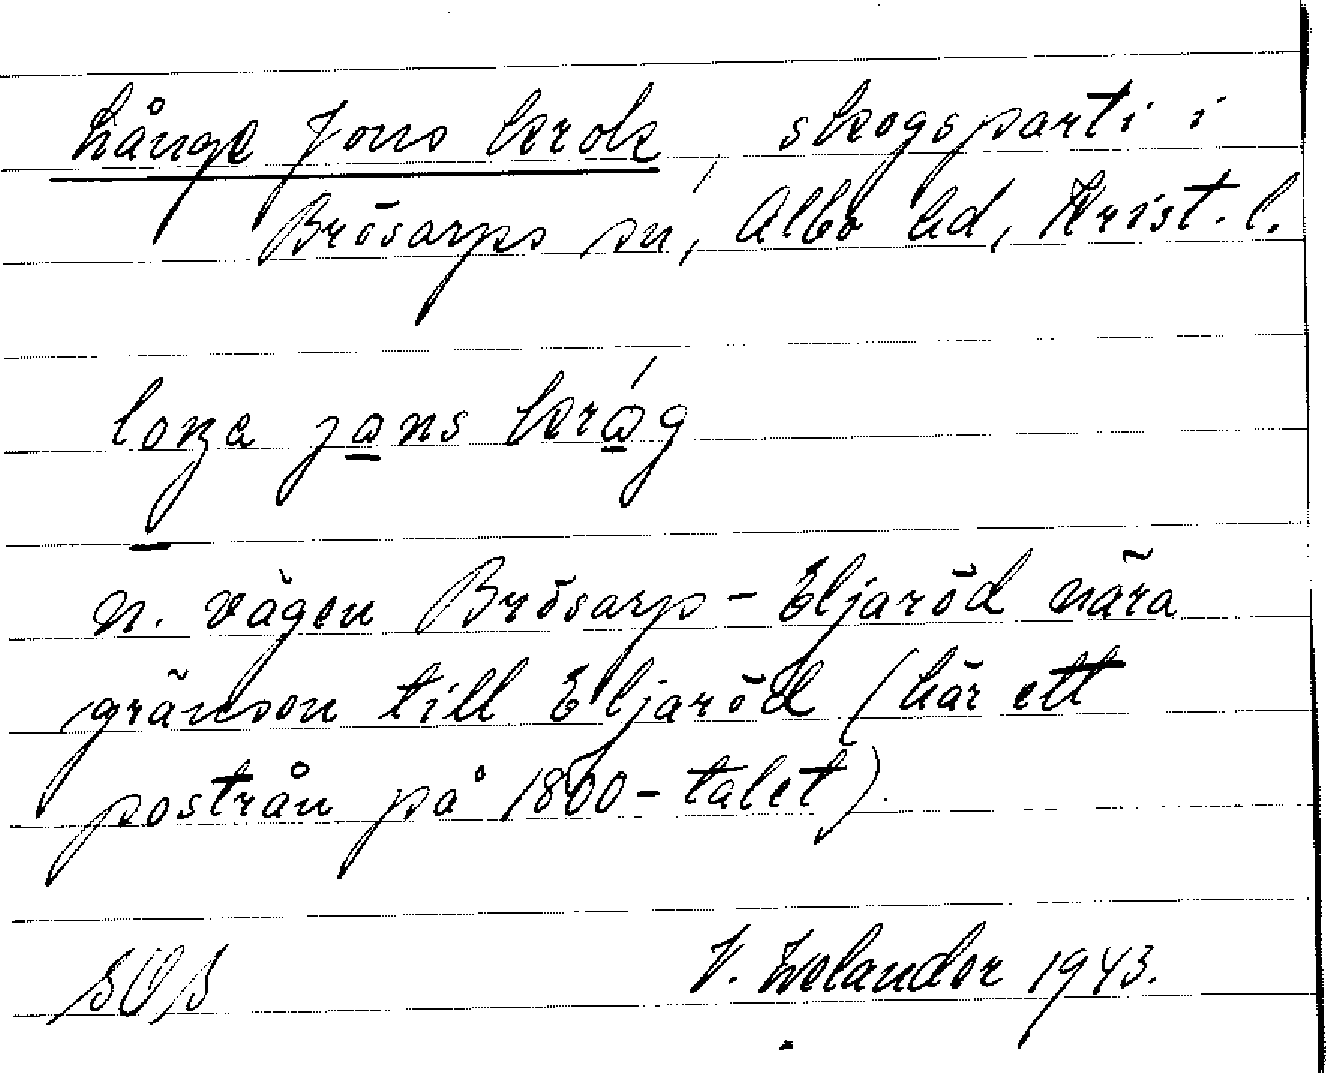 Långe Jons krok, skogsparti i
Brösarps sn, Albo hd, Krist. l.
n. vägen Brösarp - Eljaröd nära
gränsen till Eljaröd (här ett
postrån på 1800-talet).
V. Welander 1943.